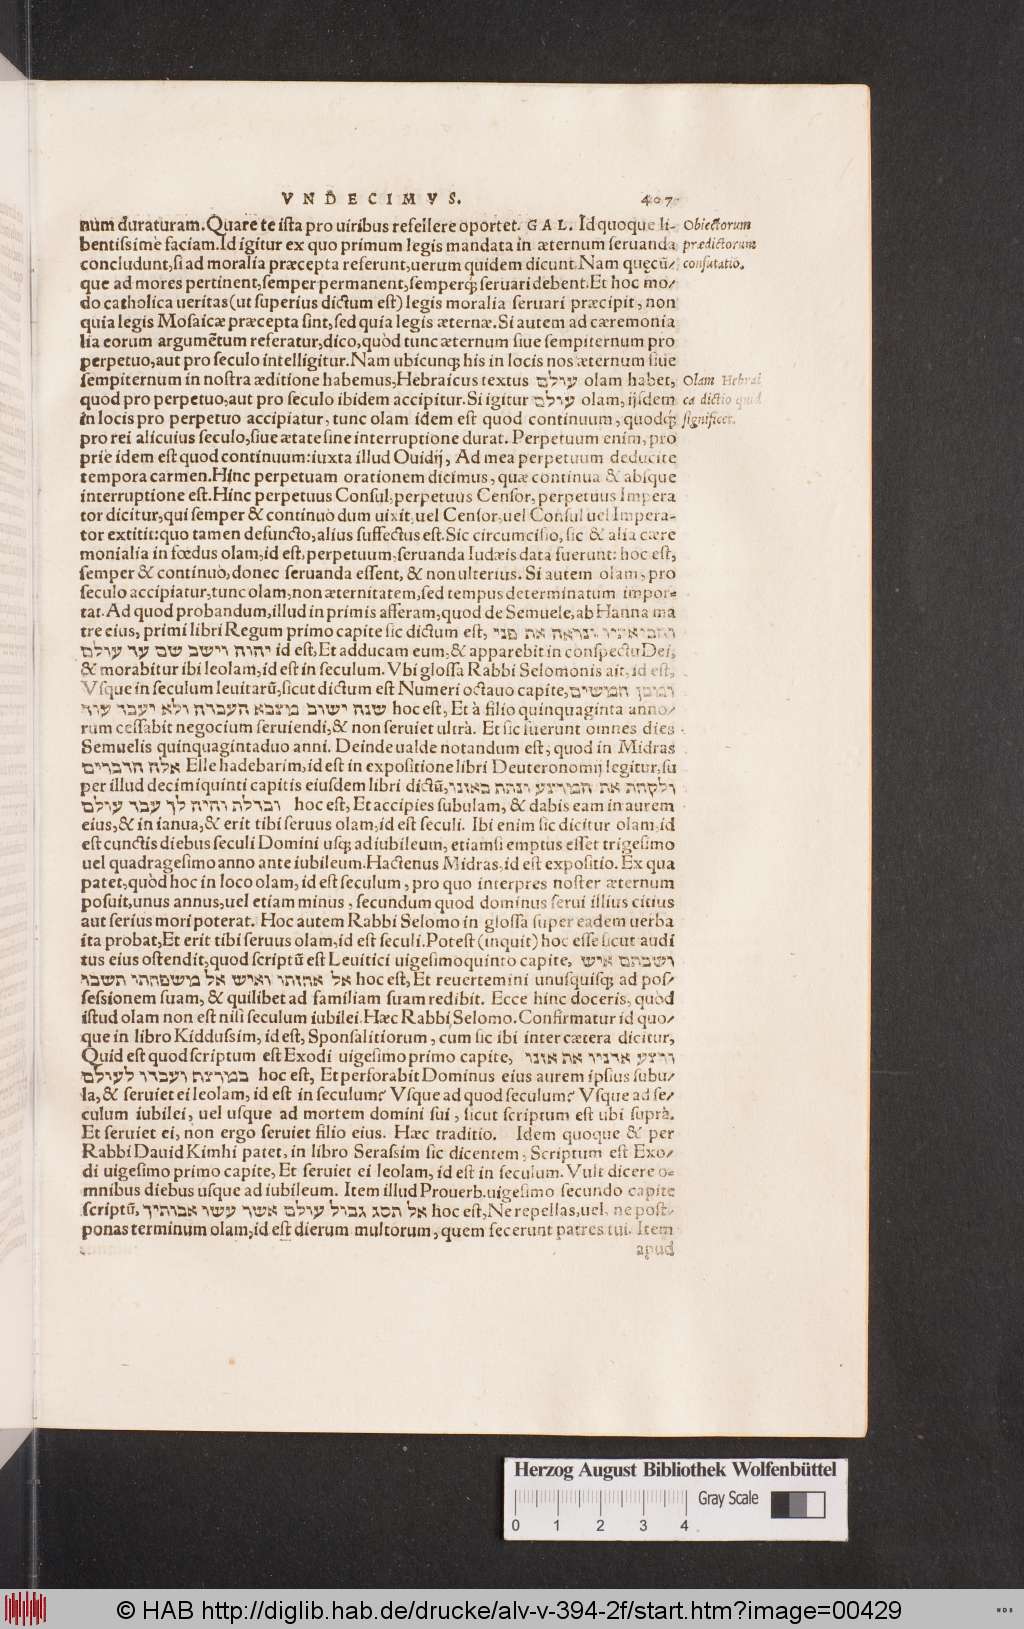 VNDECIMVS. 407
num duraturam. Quare te ista pro uiribus refellere oportet. GAL. Id quoque li-
bentissime faciam. Id igitur ex quo primum legis mandata in æternum seruanda
concludunt, si ad moralia præcepta referunt, uerum quidem dicunt. Nam quęcũ/
que ad mores pertinent, semper permanent, semperq; seruari debent. Et hoc mo/
do catholica ueritas (ut superius dictum est) legis moralia seruari præcipit, non
quia legis Mosaicæ præcepta sint, sed quia legis æternæ. Si autem ad cæremonia
lia eorum argumẽtum referatur, dico, quòd tunc æternum siue sempiternum pro
perpetuo, aut pro seculo intelligitur. Nam ubicunq; his in locis nos æternum siue
sempiternum in nostra æditione habemus, Hebraicus textus עולם olam habet,
quod pro perpetuo, aut pro seculo ibidem accipitur. Si igitur עולם olam, ijsdem
in locis pro perpetuo accipiatur, tunc olam idem est quod continuum, quodq;
pro rei alicuius seculo, siue ætate sine interruptione durat. Perpetuum enim, pro
prie idem est quod continuum: iuxta illud Ouidij, Ad mea perpetuum deducite
tempora carmen. Hinc perpetuam orationem dicimus, quæ continua & absque
interruptione est. Hinc perpetuus Consul, perpetuus Censor, perpetuus Impera
tor dicitur, qui semper & continuò dum uixit, uel Censor, uel Consul uel Impera-
tor extitit: quo tamen defuncto, alius suffectus est. Sic circumcisio, sic & alia cære
monialia in fœdus olam, id est, perpetuum, seruanda Iudæis data fuerunt: hoc est,
semper & continuò, donec seruanda essent, & non ulterius. Si autem olam, pro
seculo accipiatur, tunc olam, non æternitatem, sed tempus determinatum impor=
tat. Ad quod probandum, illud in primis afferam, quod de Semuele, ab Hanna ma
tre eius, primi libri Regum primo capite sic dictum est, והביאתיו ונראה את פני
יהוה וישב שם עד עולם id est, Et adducam eum, & apparebit in conspectu Dei,
& morabitur ibi leolam, id est in seculum. Vbi glossa Rabbi Selomonis ait, id est,
Vsque in seculum leuitarũ, sicut dictum est Numeri octauo capite, ומבן חמשים
שנה ישוב מצבא העברה ולא יעבד עוד hoc est, Et à filio quinquaginta anno/
rum cessabit negocium seruiendi, & non seruiet ultrà. Et sic fuerunt omnes dies
Semuelis quinquagintaduo anni. Deinde ualde notandum est, quod in Midras
אלה הדברים Elle hadebarim, id est in expositione libri Deuteronomij legitur, su
per illud decimiquinti capitis eiusdem libri dictũ, ולקחת את המרצע ונתת באזנו
ובדלת והיה לך עבד עולם hoc est, Et accipies subulam, & dabis eam in aurem
eius, & in ianua, & erit tibi seruus olam, id est seculi. Ibi enim sic dicitur olam, id
est cunctis diebus seculi Domini usq; ad iubileum, etiamsi emptus esset trigesimo
uel quadragesimo anno ante iubileum. Hactenus Midras, id est expositio. Ex qua
patet, quòd hoc in loco olam, id est seculum, pro quo interpres noster æternum
posuit, unus annus, uel etiam minus, secundum quod dominus serui illius citius
aut serius mori poterat. Hoc autem Rabbi Selomo in glossa super eadem uerba
ita probat, Et erit tibi seruus olam, id est seculi. Potest (inquit) hoc esse sicut audi
tus eius ostendit, quod scriptũ est Leuitici uigesimoquinto capite, ושבתם איש
אל אחזתו ואיש אל משפחתו תשבו hoc est, Et reuertemini unusquisq; ad pos/
sessionem suam, & quilibet ad familiam suam redibit. Ecce hinc doceris, quòd
istud olam non est nisi seculum iubilei. Hæc Rabbi Selomo. Confirmatur id quo/
que in libro Kiddussim, id est, Sponsalitiorum, cum sic ibi inter cætera dicitur,
Quid est quod scriptum est Exodi uigesimo primo capite, ורצע אדניו את אזנו
במרצע ועבדו לעולם hoc est, Et perforabit Dominus eius aurem ipsius subu/
la, & seruiet ei leolam, id est in seculum? Vsque ad quod seculum? Vsque ad se/
culum iubilei, uel usque ad mortem domini sui, sicut scriptum est ubi suprà.
Et seruiet ei, non ergo seruiet filio eius. Hæc traditio. Idem quoque & per
Rabbi Dauid Kimhi patet, in libro Serassim sic dicentem, Scriptum est Exo/
di uigesimo primo capite, Et seruiet ei leolam, id est in seculum. Vult dicere o=
mnibus diebus usque ad iubileum. Item illud Prouerb. uigesimo secundo capite
scriptũ, אל תסג גבול עולם אשר עשו אבותיך hoc est, Ne repellas, uel, ne post-
ponas terminum olam, id est dierum multorum, quem fecerunt patres tui. Item
apud
Obiectorum
prædictorum
confutatio.
Olam Hebrai
ca dictio quid
significet.
Herzog August Bibliothek Wolfenbüttel
Gray Scale
0 1 2 3 4
© HAB http://diglib.hab.de/drucke/alv-v-394-2f/start.htm?image=00429